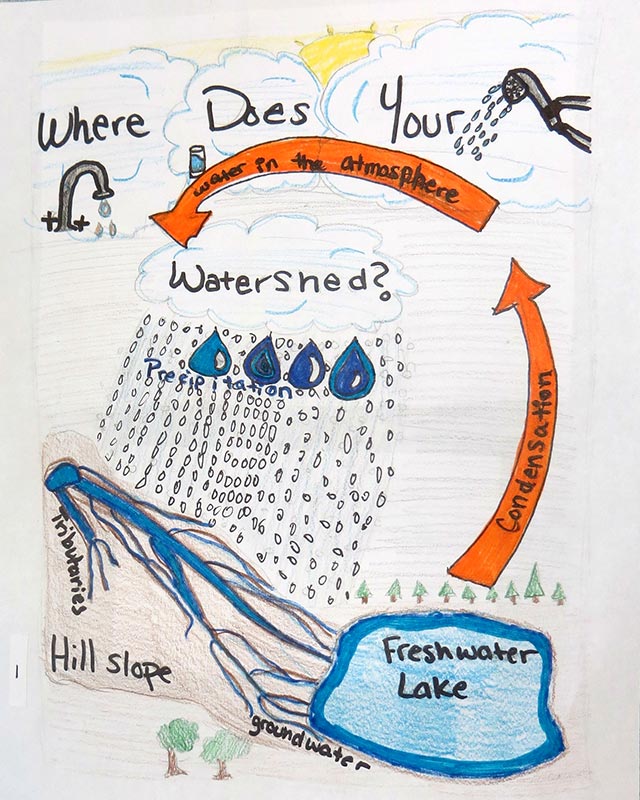 Where Does Your
water in the atmosphere
Watershed?
Precipitation
Condensation
Tributaries
Freshwater
Lake
Hill slope
groundwater
1